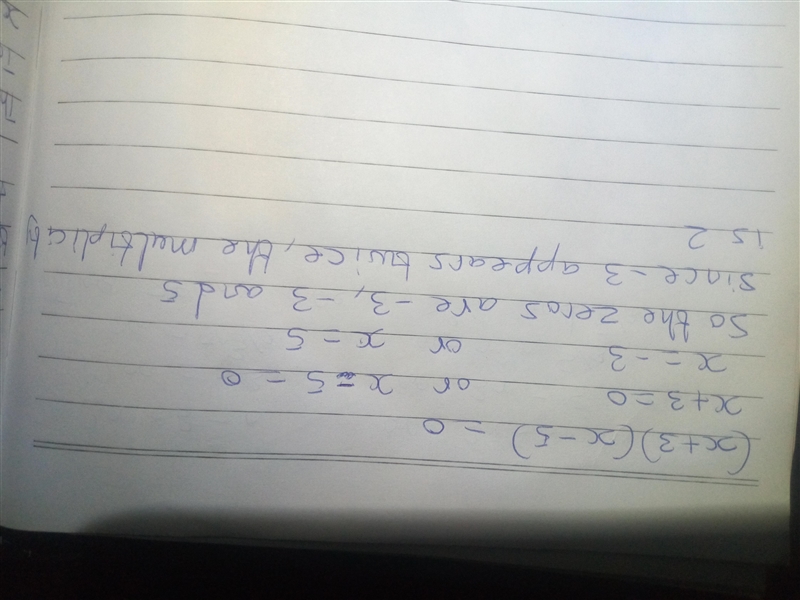 (x+3)(x-5) = 0
x+3=0 or x-5=0
x=-3 or x=5
So the zeros are -3, -3 and 5
since -3 appears twice, the multiplicity
is 2